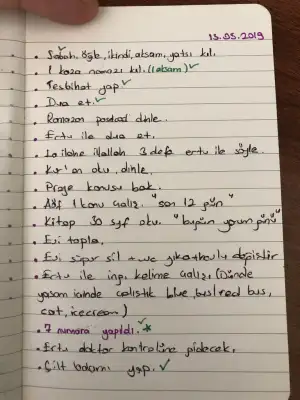 15.05.2019
. Sabah, öğle, ikindi, akşam, yatsı kıl.
. 1 kaza namazı kıl. (1 akşam) ✓
. Tesbihat yap ✓
. Dua et. ✓
. Ramazan postcad dinle.
. Ertu ile dua et.
. La ilahe illallah 3 defa ertu ile söyle.
. Kur'an oku, dinle.
. Proje konusu bak.
. 1 konu çalış. "son 12 gün"
. Kitap 30 syf oku. "bugün yorum günü"
. Evi topla.
. Evi süpür sil + wc yıka + havlu değiştir
. Ertu ile ing. kelime çalış. (Günde
yaşam içinde çalıştık blue, bus/red bus,
cat, icecream)
. 7 numara yapıldı. ✓*
. Ertu doktor kontrolüne gidecek.
. Cilt bakımı yap. ✓